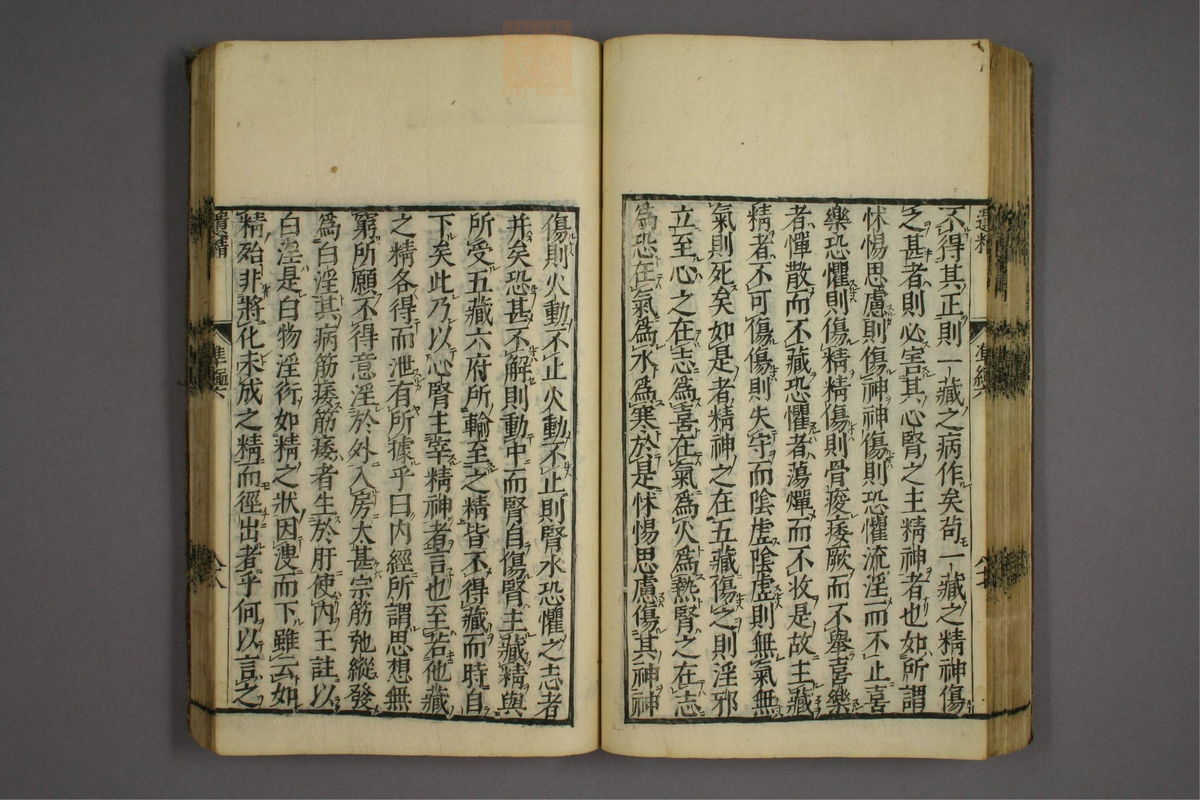 不得其正則一藏之病作矣苟一藏之精神傷
之甚者則必害其心腎之主精神者也如所謂
怵惕思慮則傷神神傷則恐懼流淫而不止喜
樂恐懼則傷精精傷則骨痠痿厥而不舉喜樂
者憚散而不藏恐懼者蕩憚而不收是故主藏
精者不可傷傷則失守而陰虛陰虛則無氣無
氣則死矣如是者精神之在五藏傷之則淫邪
立至心之在志為喜在氣為火為熱腎之在志
為恐在氣為水為寒於是怵惕思慮傷其神神
傷則火動不止火動不止則腎水恐懼之志者
并矣恐甚不解則動中而腎自傷腎主藏精與
所受五藏六府所輸至之精皆不得藏而時自
下矣此乃以心腎主宰精神者言也至若他藏
之精各得而泄有所據乎曰內經所謂思想無
窮所願不得意淫於外入房太甚宗筋弛縱發
為白淫其病筋痿筋痿者生於肝使內王註以
白淫是白物淫衍如精之狀因溲而下雖云如
精殆非將化未成之精而徑出者乎何以言之
遺精
八十八